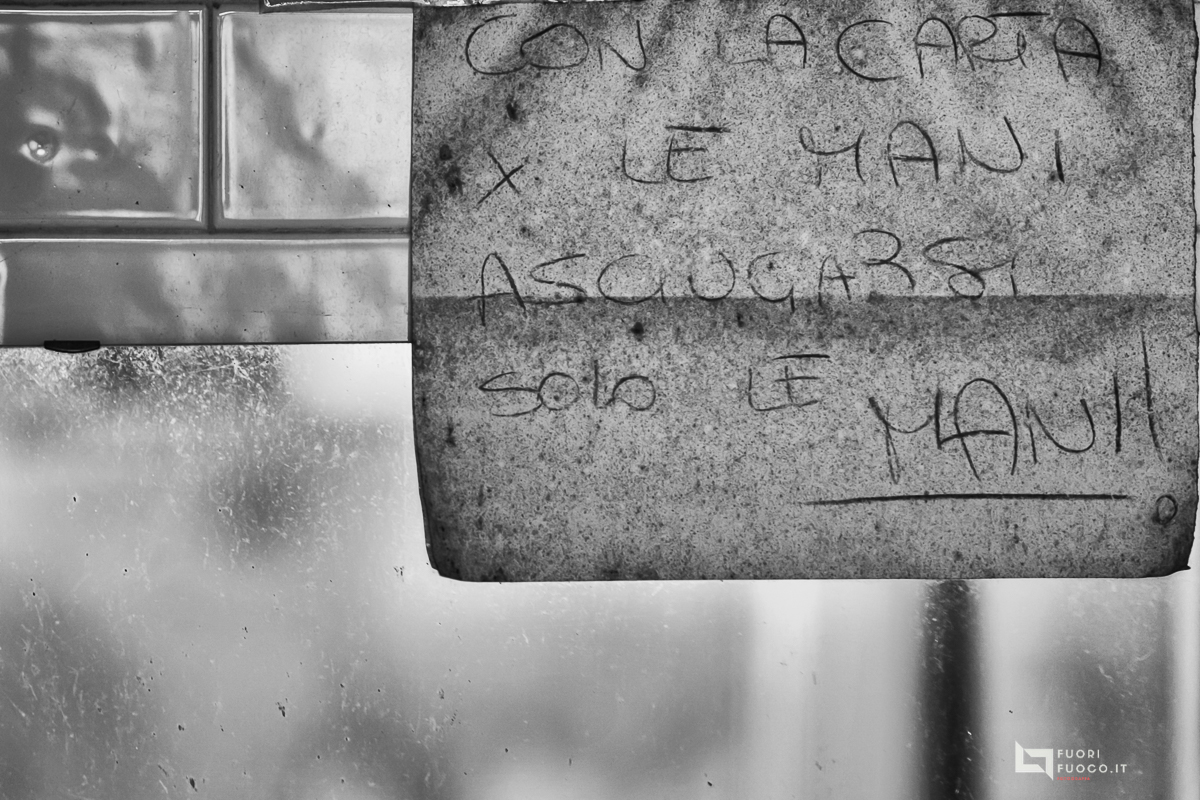 CON LA CARTA
X LE MANI
ASCIUGARSI
SOLO LE MANI!
FUORI
FUOCO.IT